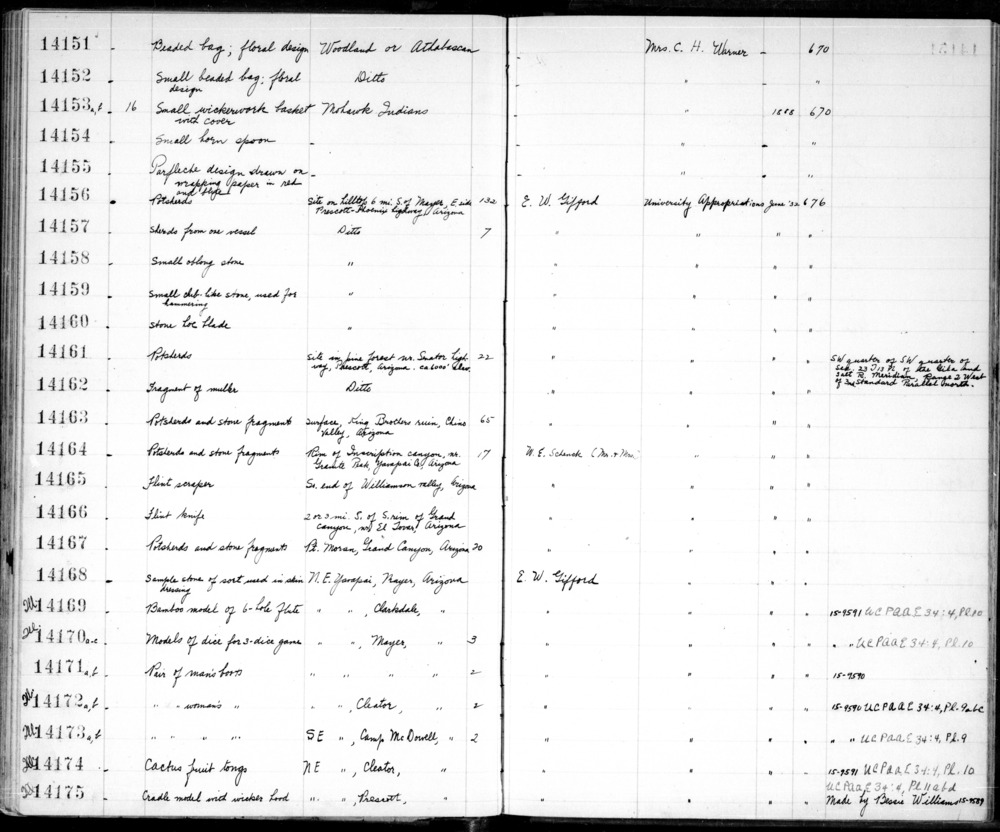 14151 - Beaded bag; floral design Woodland or Athabascan - Mrs. C. H. Warner - 670
14152 - Small beaded bag; floral Ditto - " - "
design
14153a,b - 16 Small wickerwork basket Mohawk Indians - " 1888 670
with cover
14154 - Small horn spoon - - " - "
14155 - Parfleche design drawn on - - " - "
wrapping paper in red
and blue
14156 - Potsherds Site on hilltop 6 mi. S. of Mayer, E side 132 E. W. Gifford University Appropriations June '32 676
Prescott-Phoenix highway, Arizona
14157 - Sherds from one vessel Ditto 7 " " " "
14158 - Small oblong stone " " " " "
14159 - Small club-like stone, used for " " " " "
hammering
14160 - Stone hoe blade " " " " "
14161 - Potsherds Site in pine forest nr. Senator high- 22 " " " " SW quarter of SW quarter of
way, Prescott, Arizona. ca 6000' elev. Sec. 23 T 13 N of the Gila and
Salt R. Meridian, Range 2 West
14162 - Fragment of muller Ditto " " " " of 3rd Standard Parallel north.
14163 - Potsherds and stone fragment Surface, King Brothers ruin, Chino 65 " " " "
Valley, Arizona
14164 - Potsherds and stone fragments Rim of Inscription canyon, nr. 17 W. E. Schenck (Mr. & Mrs. " " "
Granite Peak, Yavapai Co., Arizona
14165 - Flint scraper So. end of Williamson valley, Arizona " " " "
14166 - Flint knife 2 or 3 mi. S. of S. rim of Grand " " " "
canyon, nr. El Tovar, Arizona
14167 - Potsherds and stone fragments Pt. Moran, Grand Canyon, Arizona 20 " " " "
14168 - Sample stone of sort used in skin N.E. Yavapai, Mayer, Arizona E. W. Gifford " " "
dressing
14169 - Bamboo model of 6-hole flute " " , Clarkdale, " " " " " 15-9591 UCPAAE 34:4, Pl. 10
14170a-c - Models of dice for 3-dice game " " , Mayer, " 3 " " " " " " UCPAAE 34:4, Pl. 10
14171a,b - Pair of man's boots " " " " 2 " " " " 15-9590
14172a,b - " " woman's " " " , Cleator, " 2 " " " " 15-9590 UCPAAE 34:4, Pl. 9a-c
14173a,b - " " " " SE " , Camp McDowell, " 2 " " " " " " UCPAAE 34:4, Pl. 9
14174 - Cactus fruit tongs NE " , Cleator, " " " " " 15-9591 UCPAAE 34:4, Pl. 10
UCPAAE 34:4, Pl 11 a b d
14175 - Cradle model with wicker hood " " , Prescott, " " " " " Made by Bessie Williams 15-9589